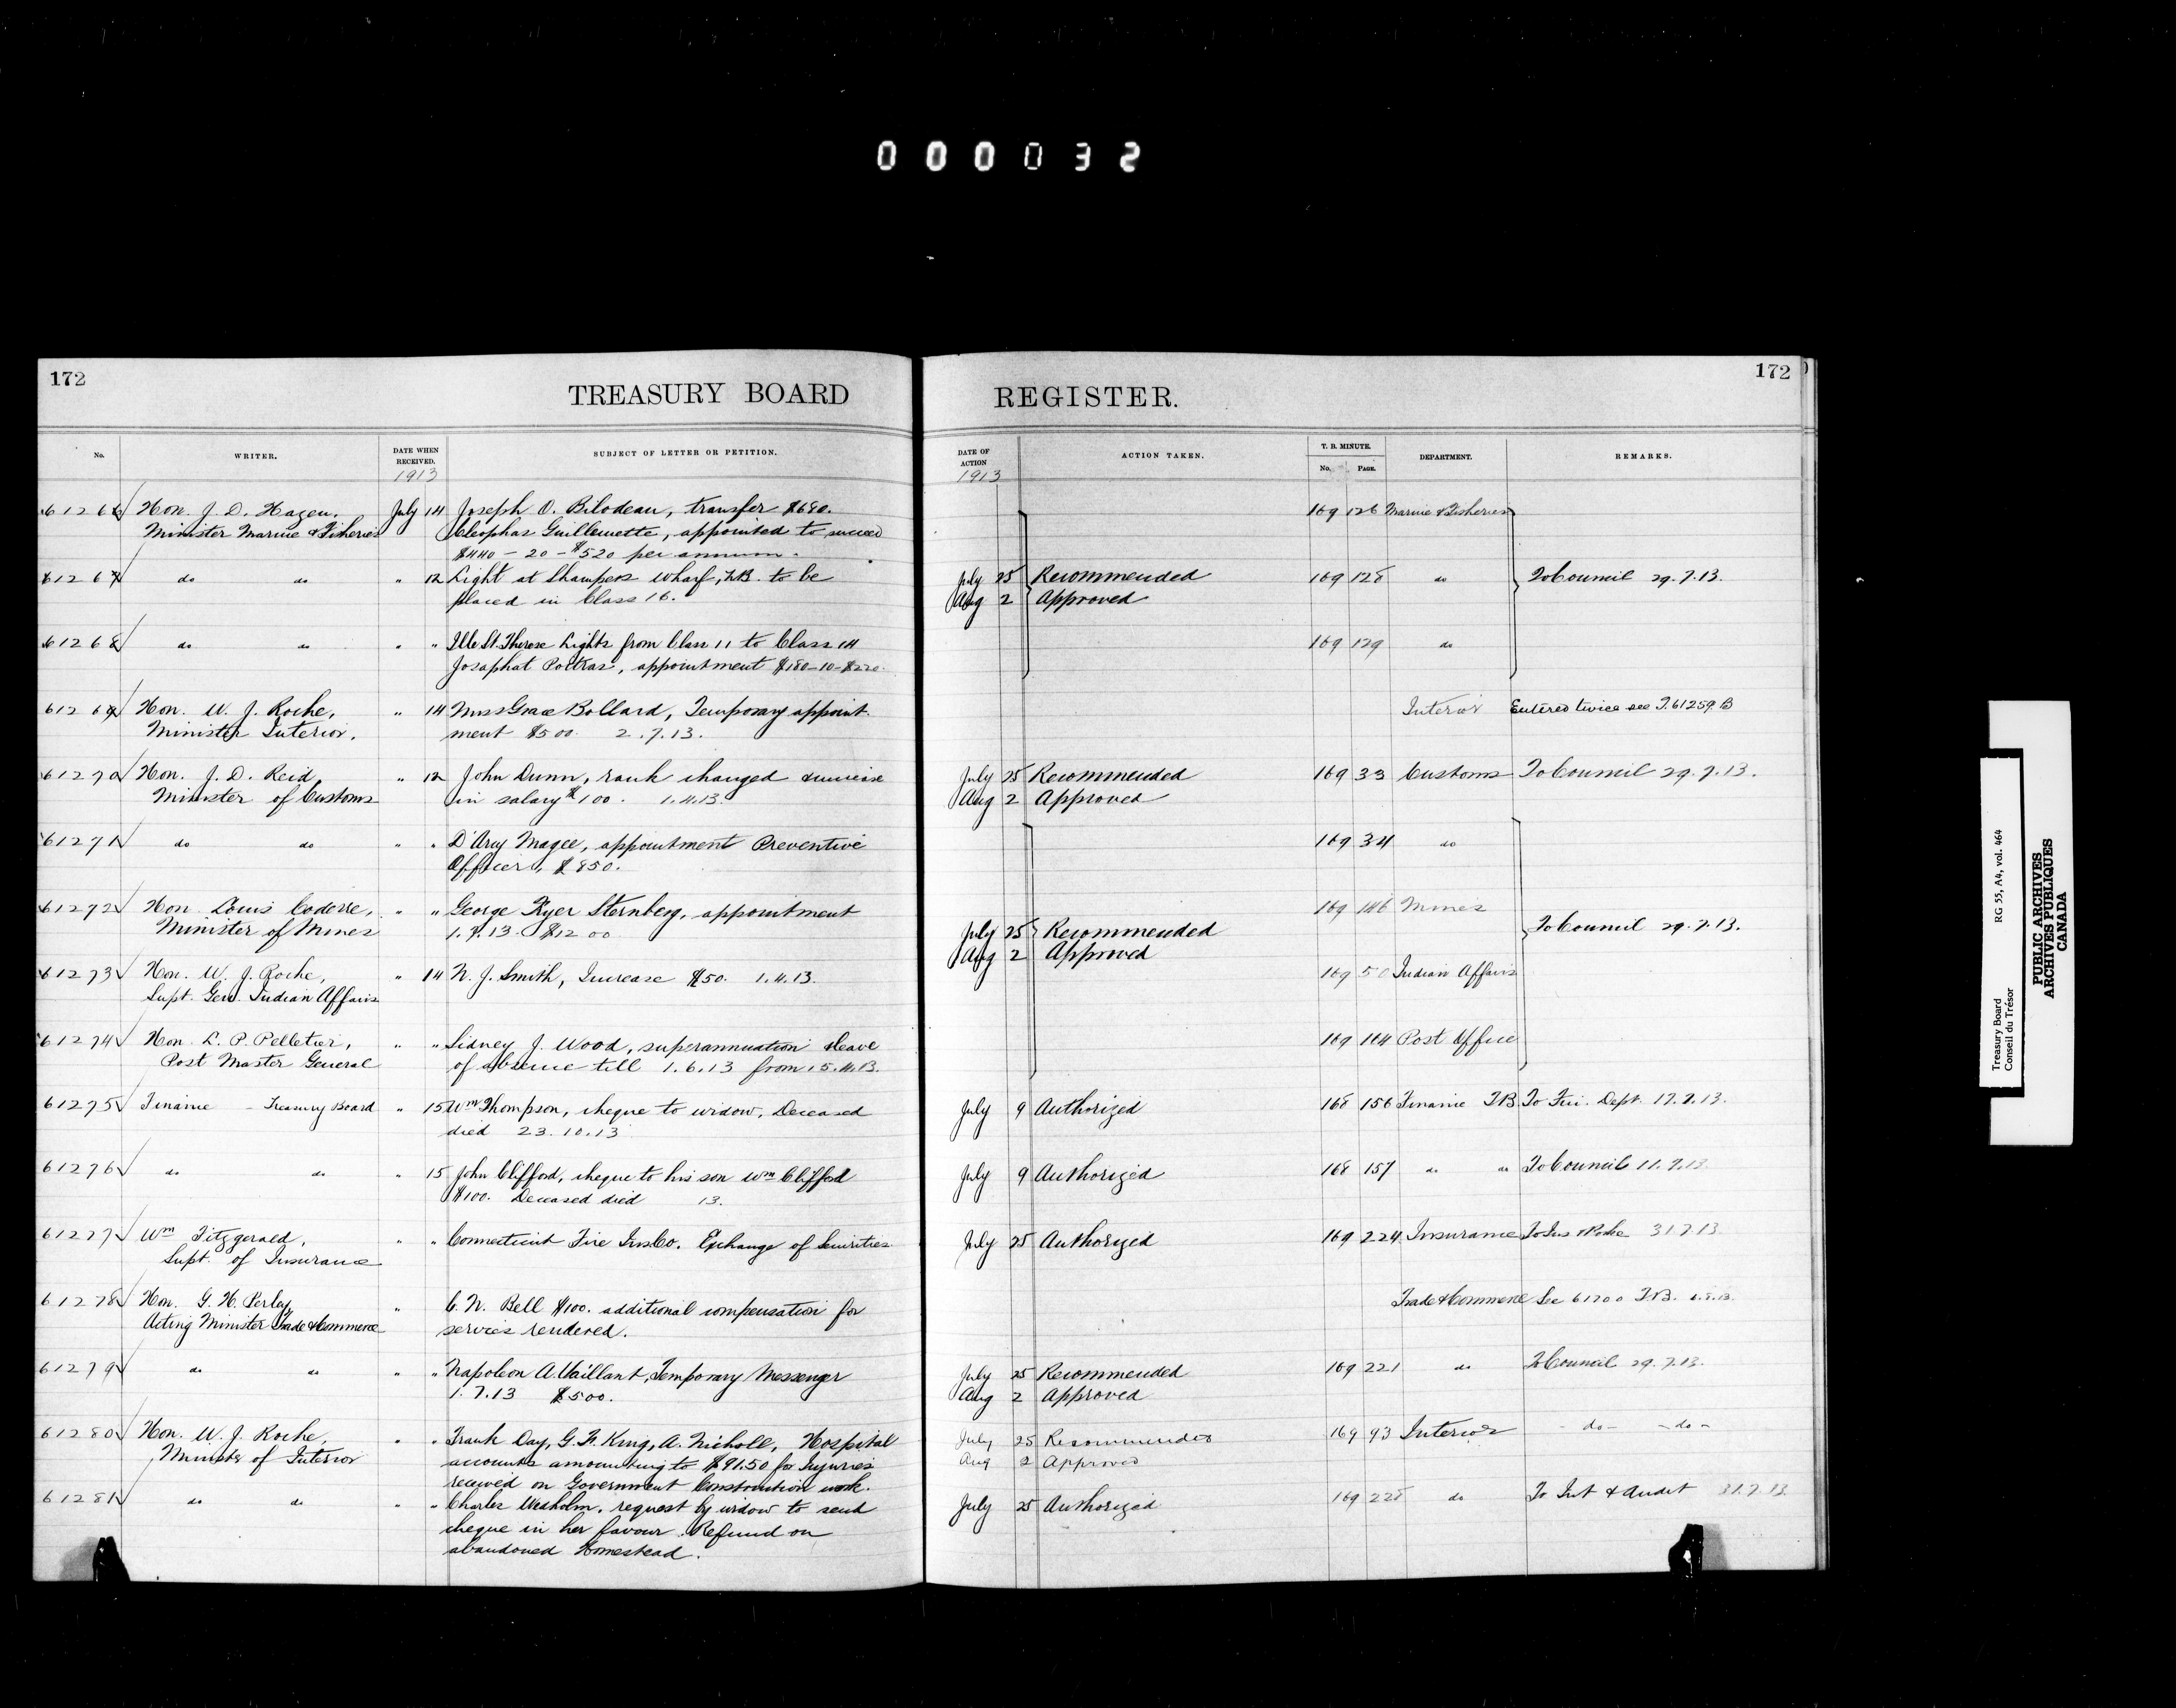 000032
172
TREASURY BOARD
REGISTER.
172
No.
WRITER.
DATE WHEN RECEIVED.
SUBJECT OF LETTER OR PETITION.
DATE OF ACTION
ACTION TAKEN.
T. B. MINUTE.
No. PAGE.
DEPARTMENT.
REMARKS.
1913
1913
61266 Hon. J. D. Hazen, July 14 Joseph O. Bilodeau, transfer $680. 169 126 Marine & Fisheries
Minister Marine & Fisheries Cleophas Guillemette, appointed to succeed
$440 - 20 - $520 per annum.
61267 do do " 12 Light at Shampers Wharf, N.B. to be July 25 Recommended 169 128 do To Council 29.7.13.
placed in Class 16. Aug 2 Approved
61268 do do " " Ille St. Therese Lights from Class 11 to Class 14 169 129 do
Josaphat Poitras, appointment $180-10-$220.
61269 Hon. W. J. Roche, " 14 Miss Grace Bollard, Temporary appoint- Interior Entered twice see T.61259.B
Minister Interior. ment $500. 2.7.13.
61270 Hon. J. D. Reid, " 12 John Dunn, rank changed & increase July 25 Recommended 169 33 Customs To Council 29.7.13.
Minister of Customs in salary $100. 1.4.13. Aug 2 Approved
61271 do do " " D'Arcy Magee, appointment Preventive 169 34 do
Officer, $850.
61272 Hon. Louis Coderre, " " George Ryer Sternberg, appointment 169 146 Mines
Minister of Mines 1.7.13. $1200 July 25 Recommended To Council 29.7.13.
Aug 2 Approved
61273 Hon. W. J. Roche, " 14 N. J. Smith, Increase $50. 1.4.13. 169 50 Indian Affairs
Supt. Gen. Indian Affairs
61274 Hon. L. P. Pelletier, " " Sidney J. Wood, superannuation & leave 169 114 Post Office
Post Master General of absence till 1.6.13 from 15.4.13.
61275 Finance - Treasury Board " 15 Wm Thompson, cheque to widow, Deceased July 9 Authorized 168 156 Finance T.B. To Fin. Dept. 17.7.13.
died 23.10.13
61276 do do " 15 John Clifford, cheque to his son Wm Clifford July 9 Authorized 168 157 do do To Council 11.7.13.
$100. Deceased died 13.
61277 Wm Fitzgerald, " " Connecticut Fire Ins Co. Exchange of Securities July 25 Authorized 169 224 Insurance To Ins 31.7.13
Supt. of Insurance
61278 Hon. G. H. Perley, " C. N. Bell $100. additional compensation for Trade & Commerce See 61200 T.B.
Acting Minister Trade & Commerce services rendered.
61279 do do " " Napoleon A. Vaillant, Temporary Messenger July 25 Recommended 169 221 do To Council 29.7.13.
1.7.13 $500. Aug 2 Approved
61280 Hon. W. J. Roche, " " Frank Day, G. H. King, A. Nicholl, Hospital July 25 Recommended 169 93 Interior -do- -do-
Minister of Interior accounts amounting to $91.50 for Injuries Aug 2 Approved
received on Government Construction work.
61281 do do " " Charles Wesholm, request by widow to send July 25 Authorized 169 225 do To Int & Audit 31.7.13
cheque in her favour. Refund on
abandoned Homestead.
Treasury Board RG 55, A4, vol. 464
Conseil du Trésor
PUBLIC ARCHIVES
ARCHIVES PUBLIQUES
CANADA